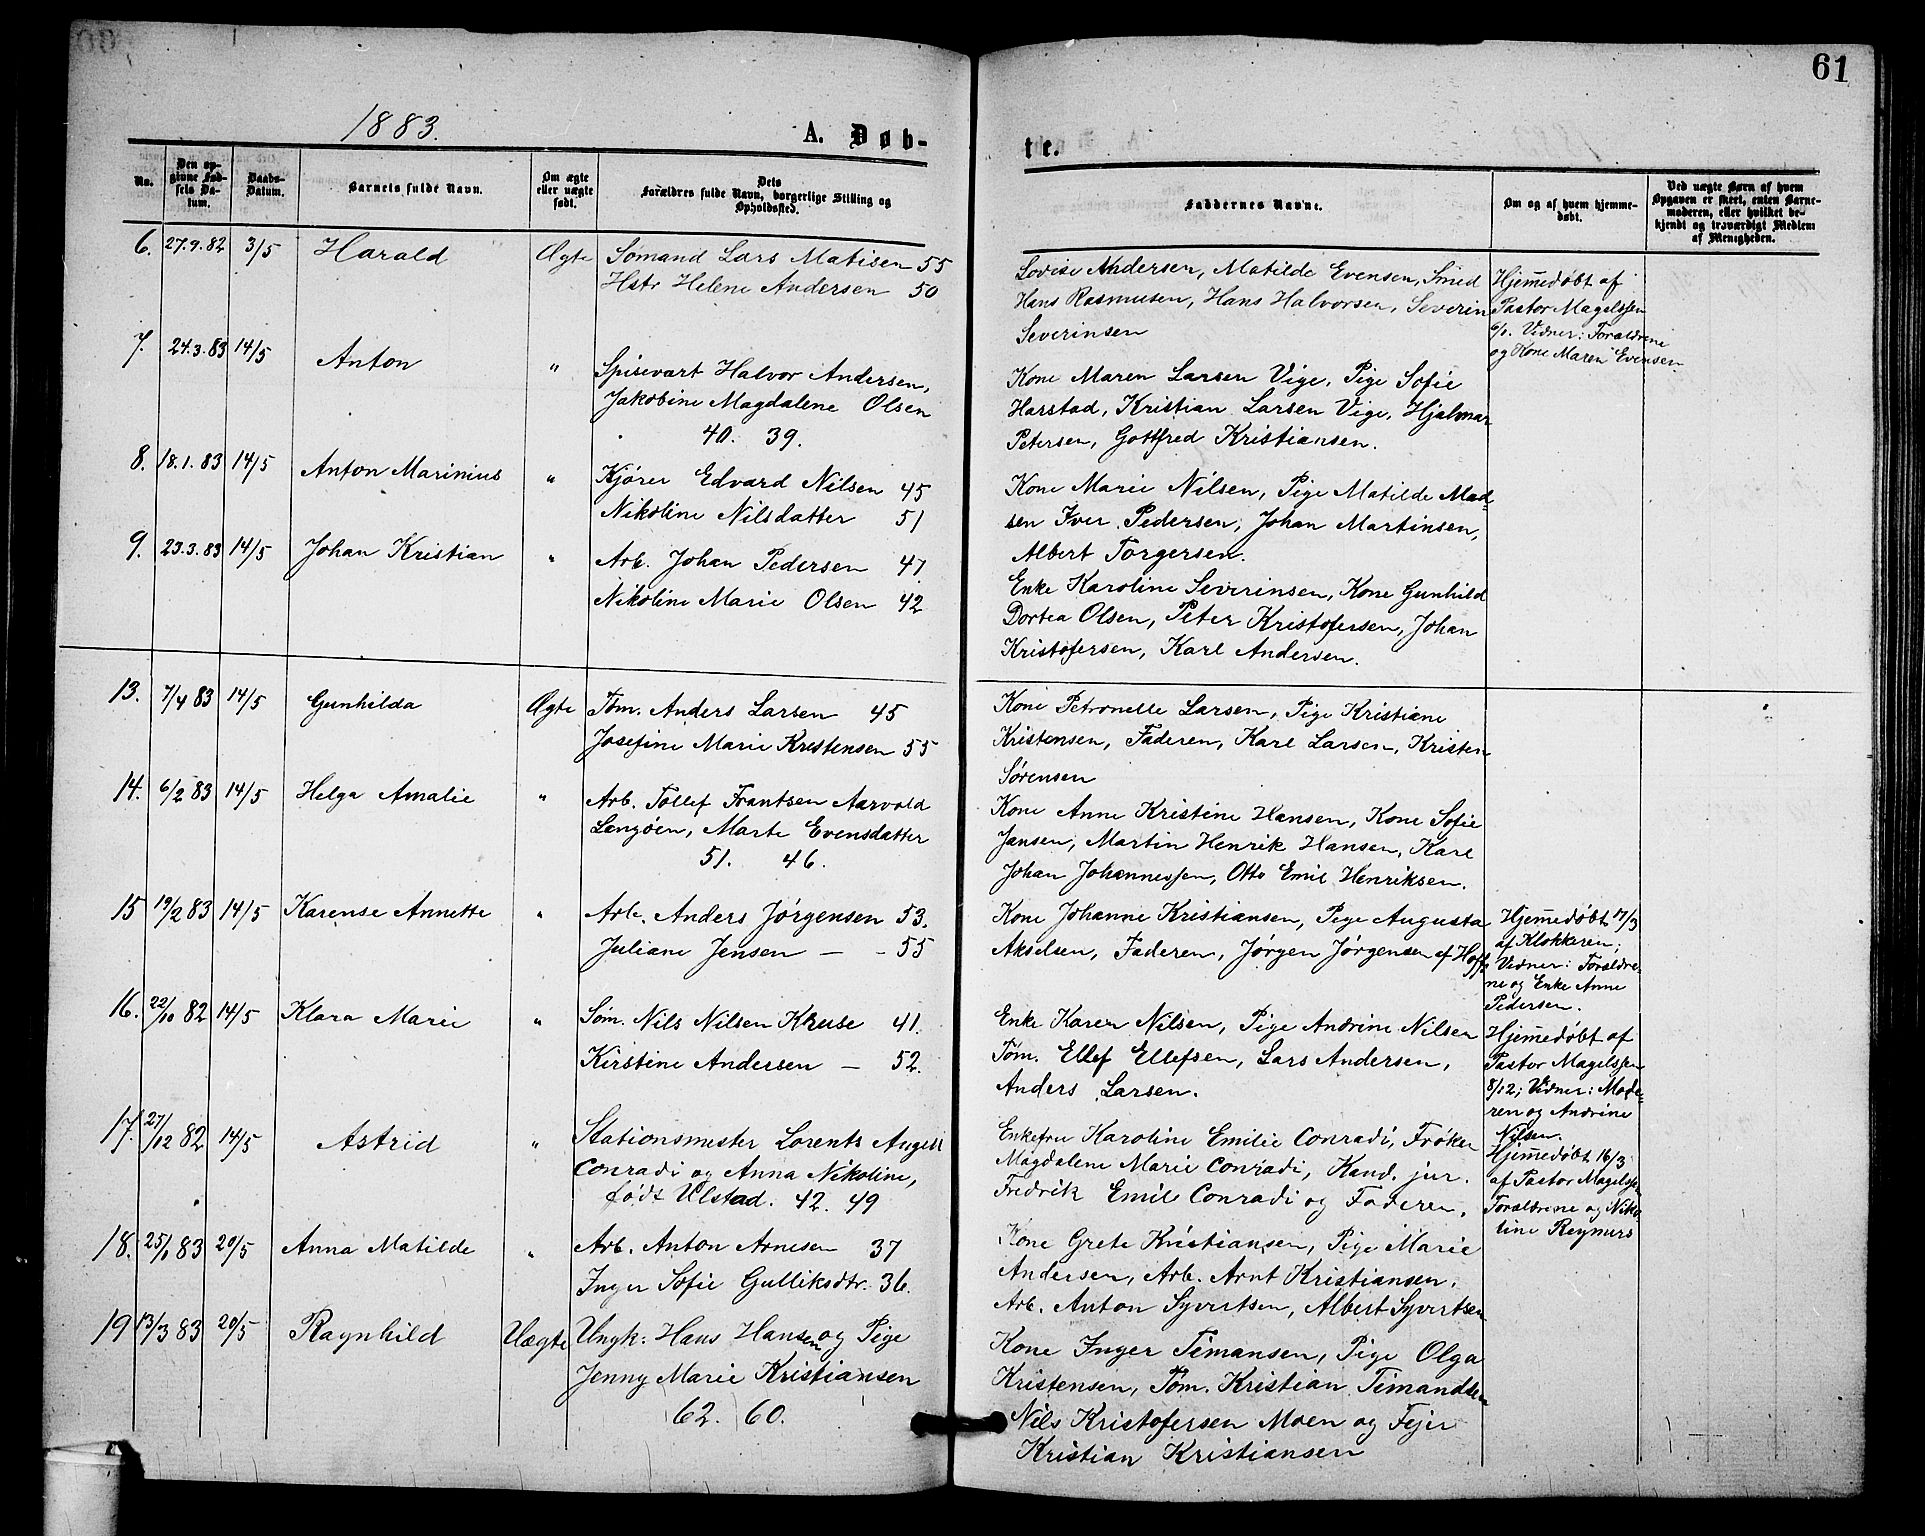 61
1883.
A. Døb-
te.
No.
Den op-
givne Fød-
sels Da-
tum.
Daabs-
Datum.
Barnets fulde Navn.
Om ægte
eller uægte
født.
Dets
Forældres fulde Navn, borgerlige Stilling og
Opholdssted.
Faddernes Navne.
Om og af hvem hjemme-
døbt.
Ved uægte Børn af hvem
Opgaven er skeet, enten Barne-
moderen, eller hvilket be-
kjendt og troværdigt Medlem
af Menigheden.
6. 27.9.82 3/5 Harald Ægte Sømand Lars Matisen 55
Hstr Helene Andersen 50
Lovise Andersen, Matilde Evensen, Smed
Hans Rasmusen, Hans Halvorsen, Severin
Severinsen
Hjemmedøbt af
Pastor Magelssen
6/1. Vidner: Forældrene
og Kone Maren Evensen
7. 24.3.83 14/5 Anton " Spisevært Halvor Andersen,
Jakobine Magdalene Olsen
40. 39.
Kone Maren Larsen Vige, Pige Sofie
Harstad, Kristian Larsen Vige, Hjalmar
Petersen, Gottfred Kristiansen.
8. 18.1.83 14/5 Anton Marinius " Kjører Edvard Nilsen 45
Nikoline Nilsdatter 51
Kone Marie Nilsen, Pige Matilde Mad-
sen Iver Pedersen, Johan Martinsen,
Albert Torgersen.
9. 23.3.83 14/5 Johan Kristian " Arb. Johan Pedersen 47
Nikoline Marie Olsen 42
Enke Karoline Severinsen, Kone Gunhild
Dortea Olsen, Peter Kristofersen, Johan
Kristofersen, Karl Andersen.
13. 7/4 83 14/5 Gunhilda Ægte Tøm. Anders Larsen 45
Josefine Marie Krestensen 55
Kone Petronelle Larsen, Pige Kristiane
Kristensen, Faderen, Karl Larsen, Kristen
Sørensen
14. 6/2 83 14/5 Helga Amalie " Arb. Tollef Frantsen Aarvold
Langøen, Marte Evensdatter
51. 46.
Kone Anne Kristine Hansen, Kone Sofie
Jansen, Martin Henrik Hansen, Karl
Johan Johannessen, Otto Emil Henriksen.
15 19/2 83 14/5 Karense Annette " Arb. Anders Jørgensen 53.
Juliane Jensen — - 55
Kone Johanne Kristiansen, Pige Augusta
Akselsen, Faderen, Jørgen Jørgensen af Hoff
Hjemmedøbt 17/3
af Klokkeren;
Vidner: Forældre-
ne og Enke Anne
Pedersen.
16. 22/10 82 14/5 Klara Marie " Søm. Nils Nilsen Kruse 41.
Kirstine Andersen — 52.
Enke Karen Nilsen, Pige Andrine Nilsen
Tøm. Ellef Ellefsen, Lars Andersen,
Anders Larsen.
Hjemmedøbt af
Pastor Magelssen
8/12; Vidner: Mode-
ren og Andrine
Nilsen.
17. 27/12 82 14/5 Astrid " Stationsmester Lorents Angell
Conradi og Anna Nikoline,
født Ulstad. 42. 49
Enkefru Karoline Emilie Conradi, Frøken
Magdalene Marie Conradi, Kand. jur.
Fredrik Emil Conradi og Faderen.
Hjemmedøbt 16/3
af Pastor Magelssen
Forældrene og Niko-
line Reymers
18. 25/1 83 20/5 Anna Matilde " Arb. Anton Arnesen 37
Inger Sofie Gulliksdtr. 36.
Kone Grete Kristiansen, Pige Marie
Andersen, Arb. Arnt Kristiansen,
Arb. Anton Syvertsen, Albert Syvertsen
19 13/3 83 20/5 Ragnhild Uægte Ungk: Hans Hansen og Pige
Jenny Marie Kristiansen
62. 60.
Kone Inger Timansen, Pige Olga
Kristensen, Tøm. Kristian Timandsen
Nils Kristofersen Moen og Fejer
Kristian Kristiansen